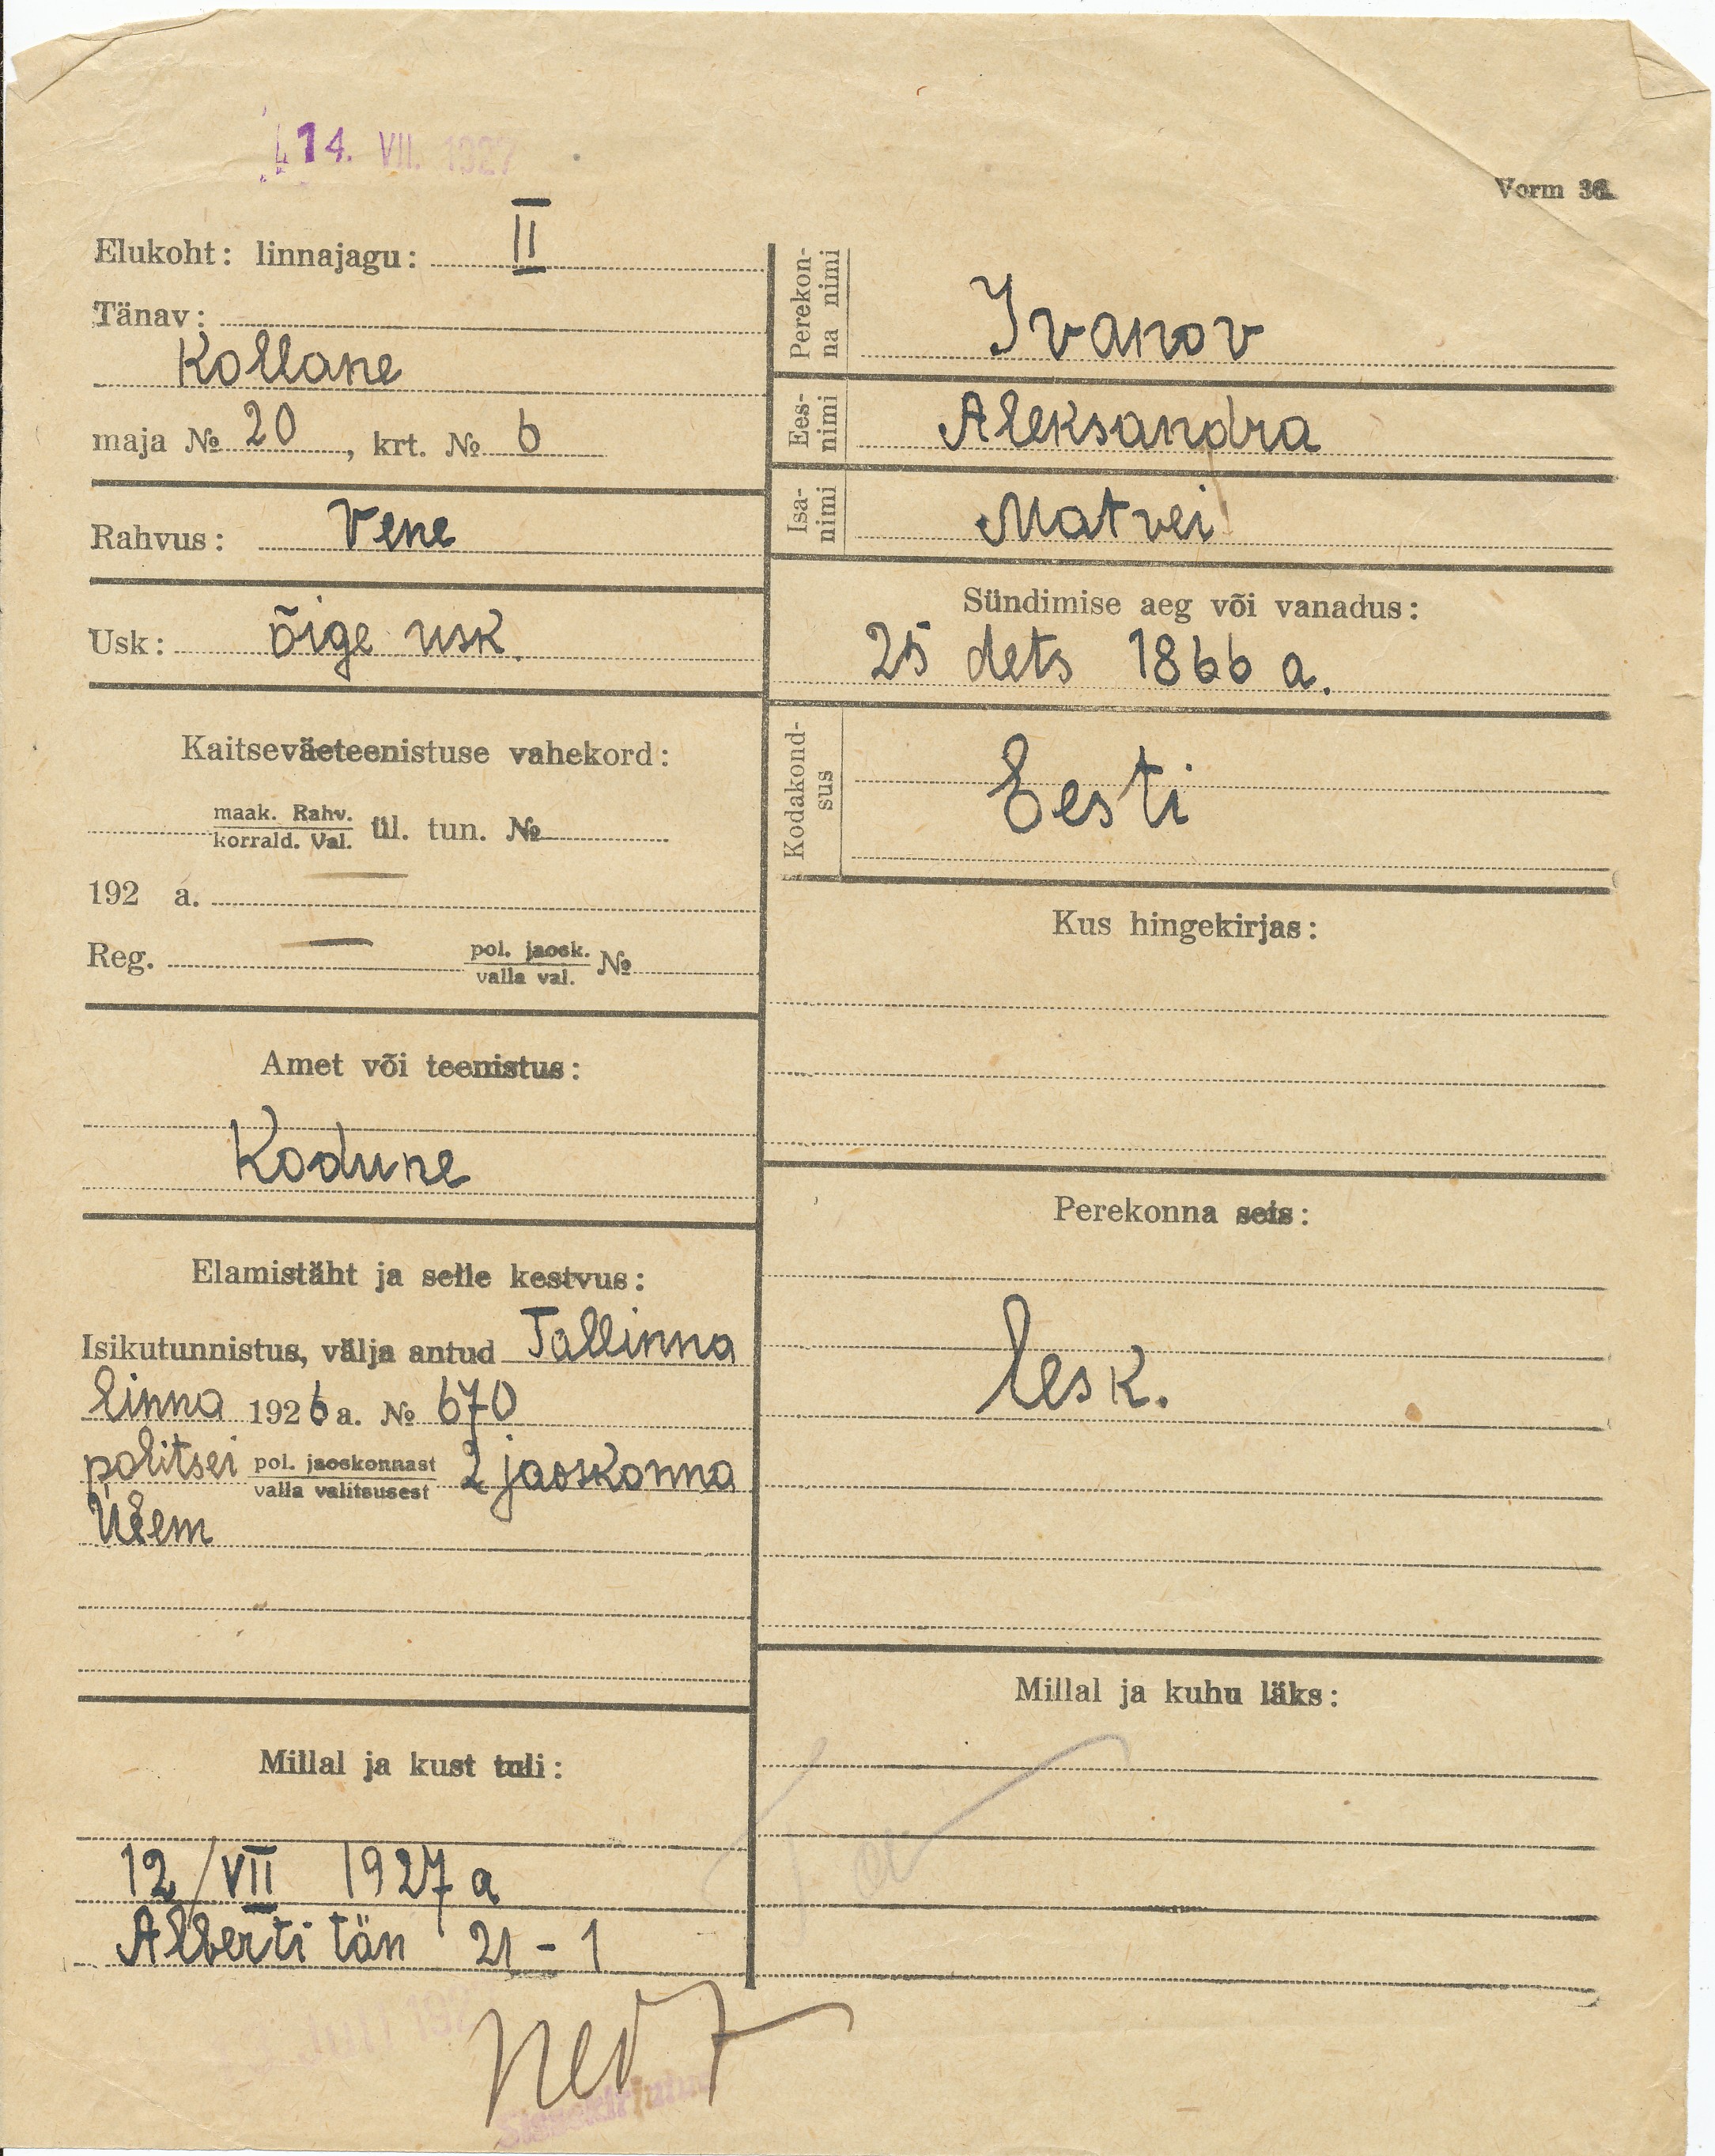 14. VII. 1927
Vorm 36.
Elukoht: linnajagu: II
Tänav:
Kollane
maja № 20, krt. № 6
Rahvus: Vene
Usk: õige usk.
Kaitseväeteenistuse vahekord:
maak. Rahv.
korrald. Val. ül. tun. №
192 a.
Reg. pol. jaosk.
valla val. №
Amet või teenistus:
Kodune
Elamistäht ja selle kestvus:
Isikutunnistus, välja antud Tallinna
linna 1926 a. № 670
politsei pol. jaoskonnast
valla valitsusest 2 jaoskonna
Ülem
Millal ja kust tuli:
12/VII 1927 a
Alberti tän 21-1
Perekon-
na nimi
Ivanov
Ees-
nimi
Aleksandra
Isa-
nimi
Matvei
Sündimise aeg või vanadus:
25 dets 1866 a.
Kodakond-
sus
Eesti
Kus hingekirjas:
Perekonna seis:
lesk.
Millal ja kuhu läks: